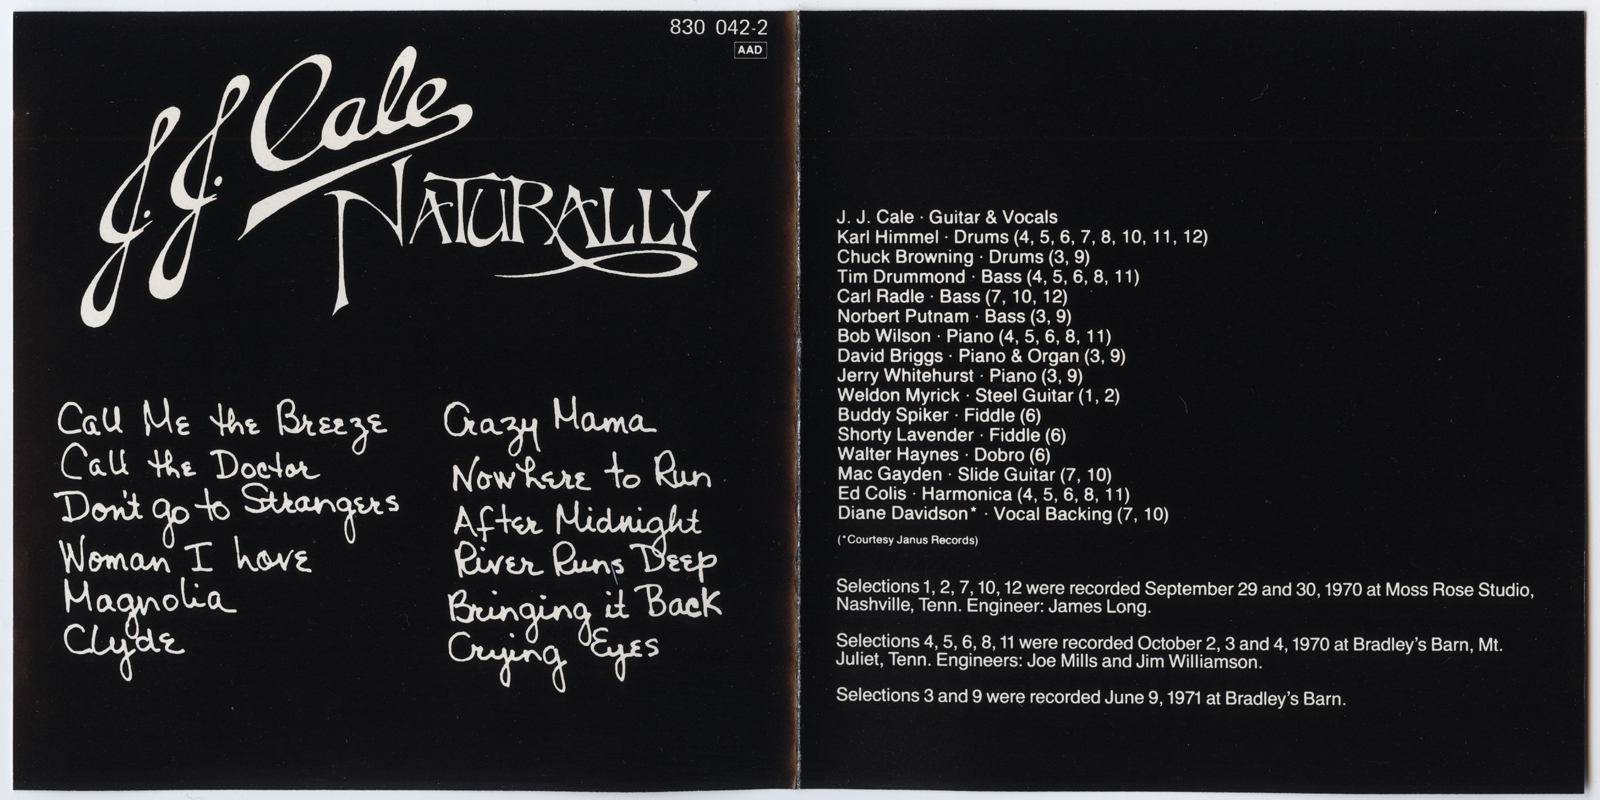 830 042-2
AAD
J.J. Cale
NATURALLY
Call Me the Breeze
Call the Doctor
Don't go to Strangers
Woman I have
Magnolia
Clyde
Crazy Mama
Nowhere to Run
After Midnight
River Runs Deep
Bringing it Back
Crying Eyes
J. J. Cale · Guitar & Vocals
Karl Himmel · Drums (4, 5, 6, 7, 8, 10, 11, 12)
Chuck Browning · Drums (3, 9)
Tim Drummond · Bass (4, 5, 6, 8, 11)
Carl Radle · Bass (7, 10, 12)
Norbert Putnam · Bass (3, 9)
Bob Wilson · Piano (4, 5, 6, 8, 11)
David Briggs · Piano & Organ (3, 9)
Jerry Whitehurst · Piano (3, 9)
Weldon Myrick · Steel Guitar (1, 2)
Buddy Spiker · Fiddle (6)
Shorty Lavender · Fiddle (6)
Walter Haynes · Dobro (6)
Mac Gayden · Slide Guitar (7, 10)
Ed Colis · Harmonica (4, 5, 6, 8, 11)
Diane Davidson* · Vocal Backing (7, 10)
(*Courtesy Janus Records)
Selections 1, 2, 7, 10, 12 were recorded September 29 and 30, 1970 at Moss Rose Studio,
Nashville, Tenn. Engineer: James Long.
Selections 4, 5, 6, 8, 11 were recorded October 2, 3 and 4, 1970 at Bradley's Barn, Mt.
Juliet, Tenn. Engineers: Joe Mills and Jim Williamson.
Selections 3 and 9 were recorded June 9, 1971 at Bradley's Barn.